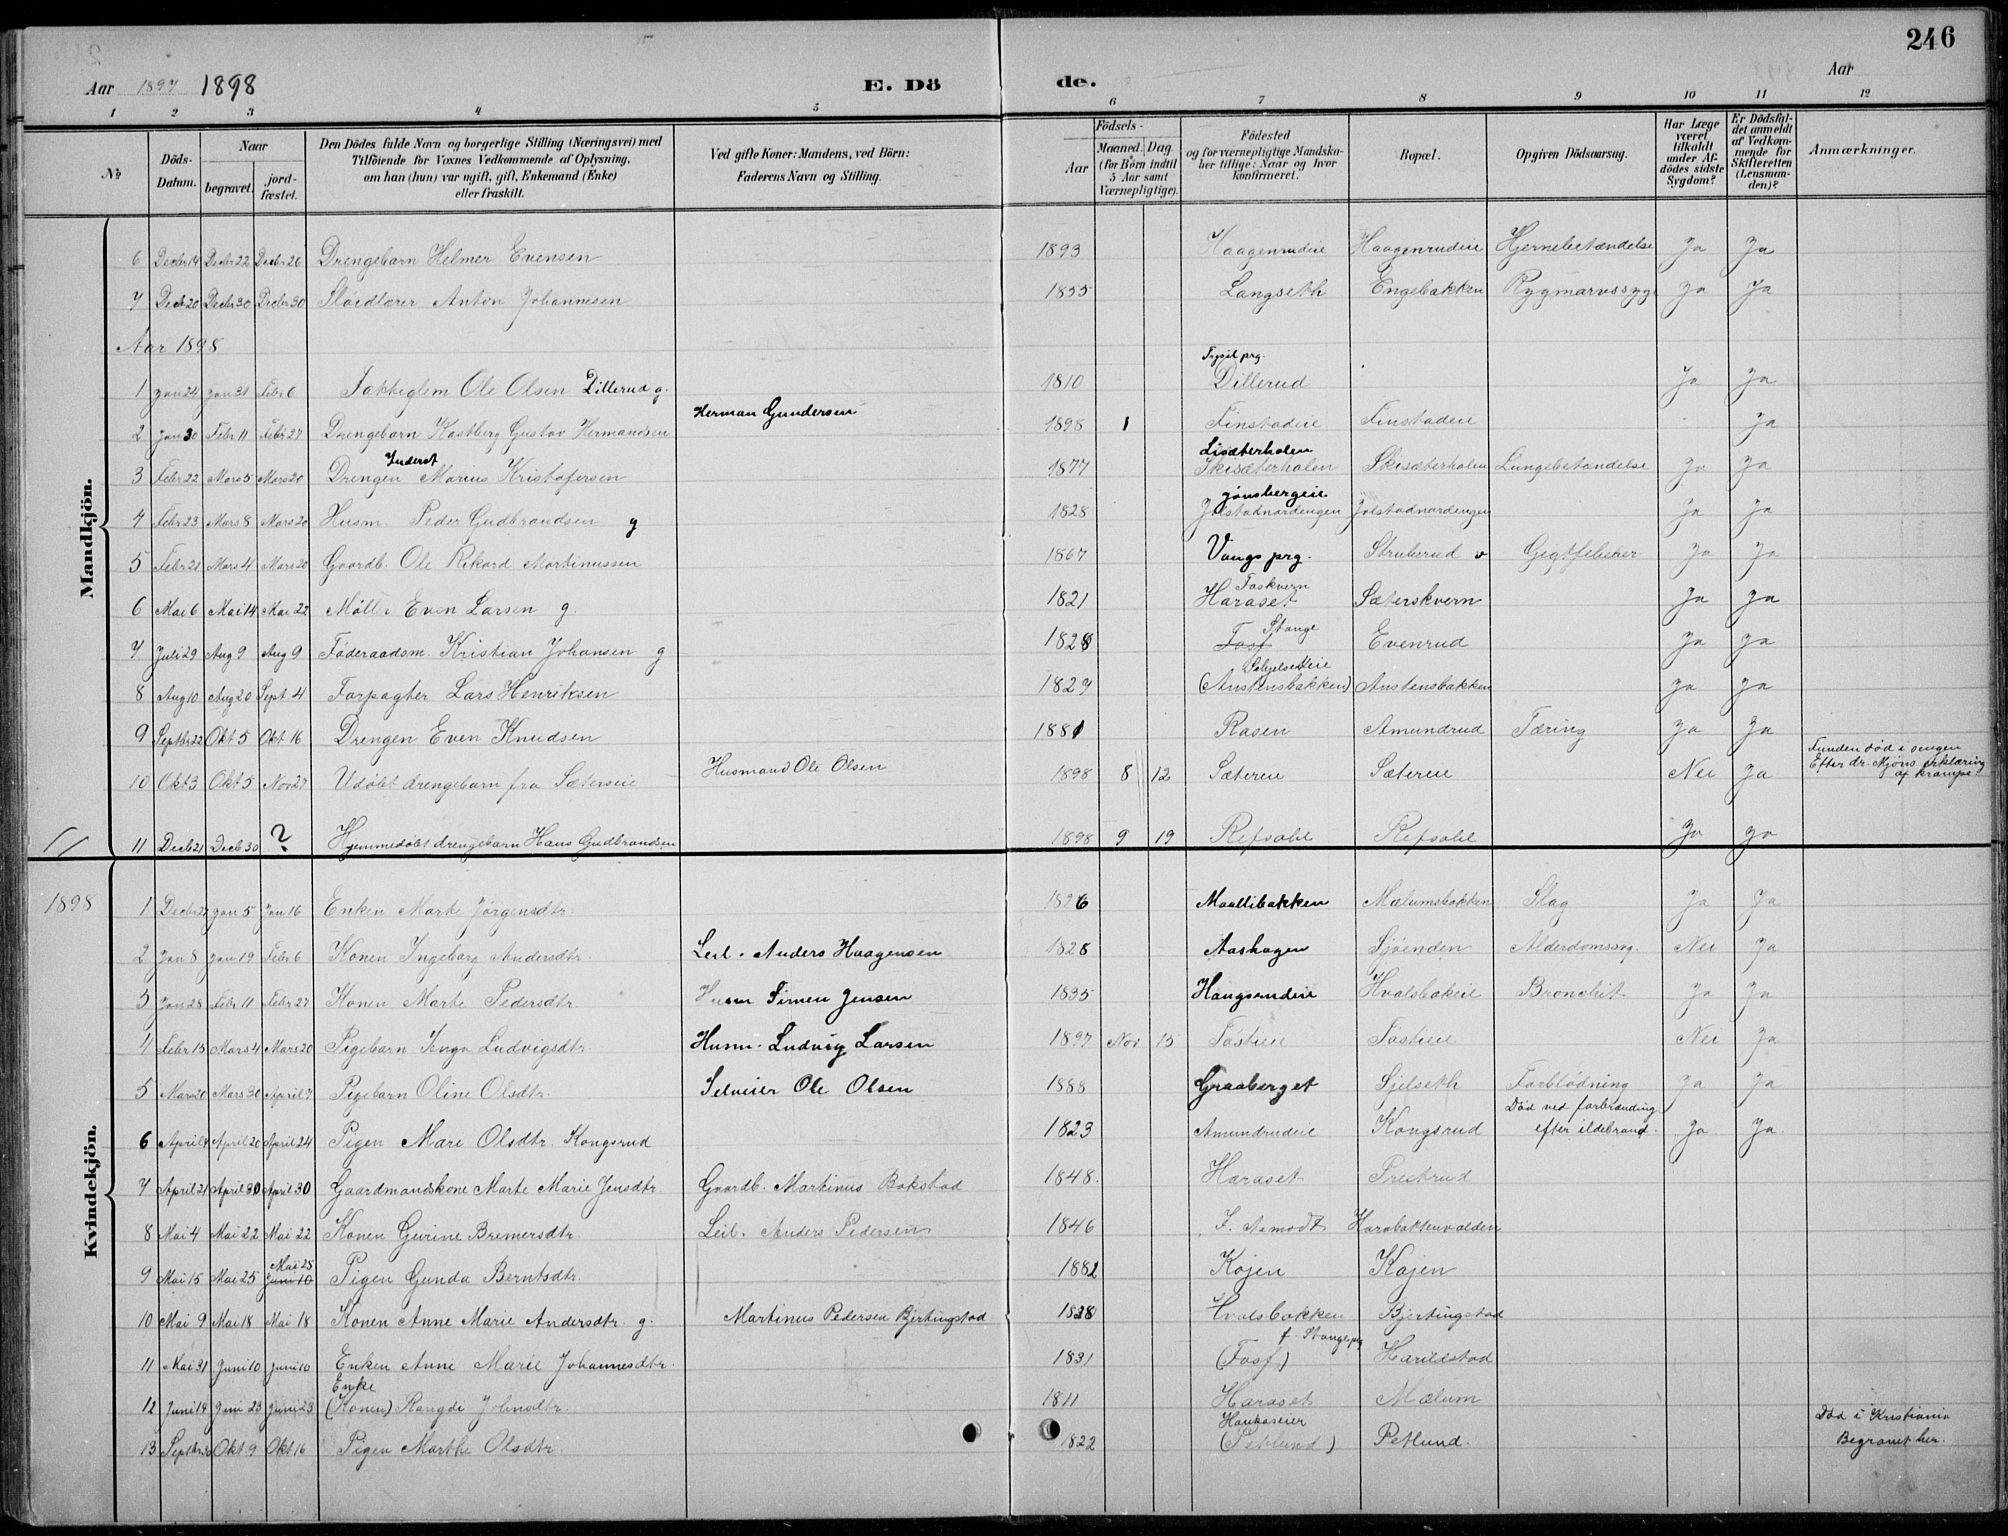 246
Aar 1897 1898 E. Döde. Aar
1 2 3 4 5 6 7 8 9 10 11 12
№
Döds-Datum.
Naar
begravet.
jord-fæstet.
Den Dödes fulde Navn og borgerlige Stilling (Næringsvei) med
Tilföiende for Voxnes Vedkommende af Oplysning,
om han (hun) var ugift, gift, Enkemand (Enke)
eller fraskilt.
Ved gifte Koner: Mandens, ved Börn:
Faderens Navn og Stilling.
Födsels-
Aar
Maaned. Dag.
(for Börn indtil
5 Aar samt
Værnepligtige).
Födested
og for værnepligtige Mandska-
ber tillige: Naar og hvor
konfirmeret.
Bopæl.
Opgiven Dödsaarsag.
Har Læge
været
tilkaldt
under Af-
dödes sidste
Sygdom?
Er Dödsfal-
det anmeldt
af Vedkom-
mende for
Skifteretten
(Lensman-
den)?
Anmærkninger.
Mandkjön.
6 Decbr 14 Decbr 22 Decbr 26 Drengebarn Helmer Evensen 1893 Haagenrudeie Haagenrudeie Hjernebetændelse Ja Ja
7 Decbr 20 Decbr 30 Decbr 30 Sløidlærer Anton Johannesen 1855 Langseth Engebakken Rygmarvssyge Ja Ja
Aar 1898
1 Jan 24 Jan 31 Febr 6 Ole Olsen Dillerud g. 1810 Trysil prg. Dillerud Ja Ja
2 Jan 30 Febr 11 Febr 27 Drengebarn Kastberg Gustav Hermandsen Herman Gundersen 1898 1 Finstadeie Finstadeie Ja
3 Febr 22 Mars 5 Mars 20 Drengen Inderst Marius Kristofersen 1877 Lisæterholen Skisæterholen Skisæterholen Lungebetændelse Ja Ja
4 Febr 23 Mars 8 Mars 20 Husm. Peder Gudbrandsen g 1828 Jønsbergeie Jolstadnordengen Jolstadnordengen Ja Ja
5 Febr 21 Mars 4 Mars 20 Gaardb. Ole Rikard Martinussen 1867 Vangs prg. Struberud v Gigtfeber Ja Ja
6 Mai 6 Mai 14 Mai 22 Møller Even Larsen g. 1821 Foskvern Haraset Sæterskvern Ja Ja
7 Juli 29 Aug 9 Aug 9 Føderaadsm. Kristian Johansen g 1828 Stange Tosf Evenrud Ja Ja
8 Aug 10 Aug 20 Sept 4 Forpagter Lars Henriksen 1829 (Anstensbakken) Anstensbakken Ja Ja
9 Septbr 22 Okt 5 Okt 16 Drengen Even Knudsen 1881 Rasen Amundrud Tæring Ja Ja
10 Okt 3 Okt 5 Nov 27 Udøbt drengebarn fra Sæterseie Husmand Ole Olsen 1898 8 12 Sætereie Sætereie Nei Ja Funden død i sengen
Efter dr. Mjøns erklæring
af krampe
11 Decb 21 Decb 30 ? Hjemmedøbt drengebarn Hans Gudbrandsen 1898 9 19 Refsahl Refsahl Ja Ja
Kvindekjön.
1898
1 Decbr 27 Jan 5 Jan 16 Enken Marte Jørgensdtr. 1826 Maallibakken Mælumsbakken Slag Ja Ja
2 Jan 8 Jan 19 Febr 6 Konen Ingeborg Andersdtr. Leil. Anders Haagensen 1828 Aashagen Sjøenden Alderdomssvg. Nei Ja
3 Jan 28 Febr 11 Febr 27 Konen Marte Pedersdtr. Husm Simen Jensen 1835 Haugsrudeie Hvalsbakeie Bronchit Ja Ja
4 Febr 15 Mars 4 Mars 20 Pigebarn Inga Ludvigsdtr. Husm. Ludvig Larsen 1897 Nov 15 Tostieie Tostieie Nei Ja
5 Mars 20 Mars 30 April 7 Pigebarn Oline Olsdtr. Selveier Ole Olsen 1888 Graaberget Sjelseth Forblødning Ja Ja
6 April 9 April 20 April 24 Pigen Mari Olsdtr. Kongsrud 1823 Amundrudeie Kongsrud Død ved forbrænding
efter ildebrand. Ja Ja
7 April 21 April 30 April 30 Gaardmandskone Marte Marie Jensdtr. Gaardb. Martinus Bakstad 1848 Haraset Prestrud
8 Mai 4 Mai 22 Mai 22 Konen Gurine Bremersdtr. Leil. Anders Pedersen 1846 F. Aamodt Harabakkenvolden
9 Mai 15 Mai 25 Mai 25 Juni 10 Pigen Gunda Berntsdtr. 1882 Kojen Kojen
10 Mai 9 Mai 18 Mai 18 Konen Anne Marie Andersdtr. g. Martinus Pedersen Bjertingstad 1838 Hvalsbakken Bjertingstad
11 Mai 31 Juni 10 Juni 10 Enken Anne Marie Johannesdtr. 1831 f. Stange prg (Tosf) Harildstad
12 Juni 14 Juni 23 Juni 23 Enke (Konen) Rangdi Johnsdtr. 1811 Haraset Mælum
13 Septbr Okt 9 Okt 16 Pigen Marthe Olsdtr. 1822 (Petlund) Petlund. Død i Kristiania
Begravet her.